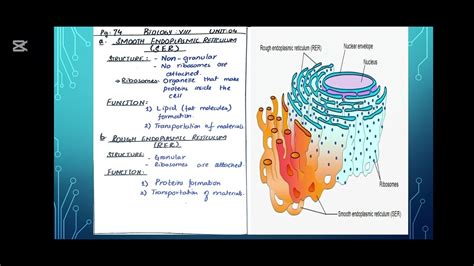 Pg: 74 BIOLOGY VIII UNIT: 04
a- SMOOTH ENDOPLASMIC RETICULUM
(SER)
STRUCTURE: - Non-granular
- No ribosomes are
attached
→ Ribosomes: Organelle that make
proteins inside the
cell
FUNCTION:
1) Lipid (fat molecules)
formation
2) Transportation of materials
b- ROUGH ENDOPLASMIC RETICULUM
(RER)
STRUCTURE - Granular
- Ribosomes are attached
FUNCTION:
1) Proteins formation
2) Transportation of materials.
Rough endoplasmic reticulum (RER)
Nuclear envelope
Nucleus
Ribosomes
Smooth endoplasmic reticulum (SER)